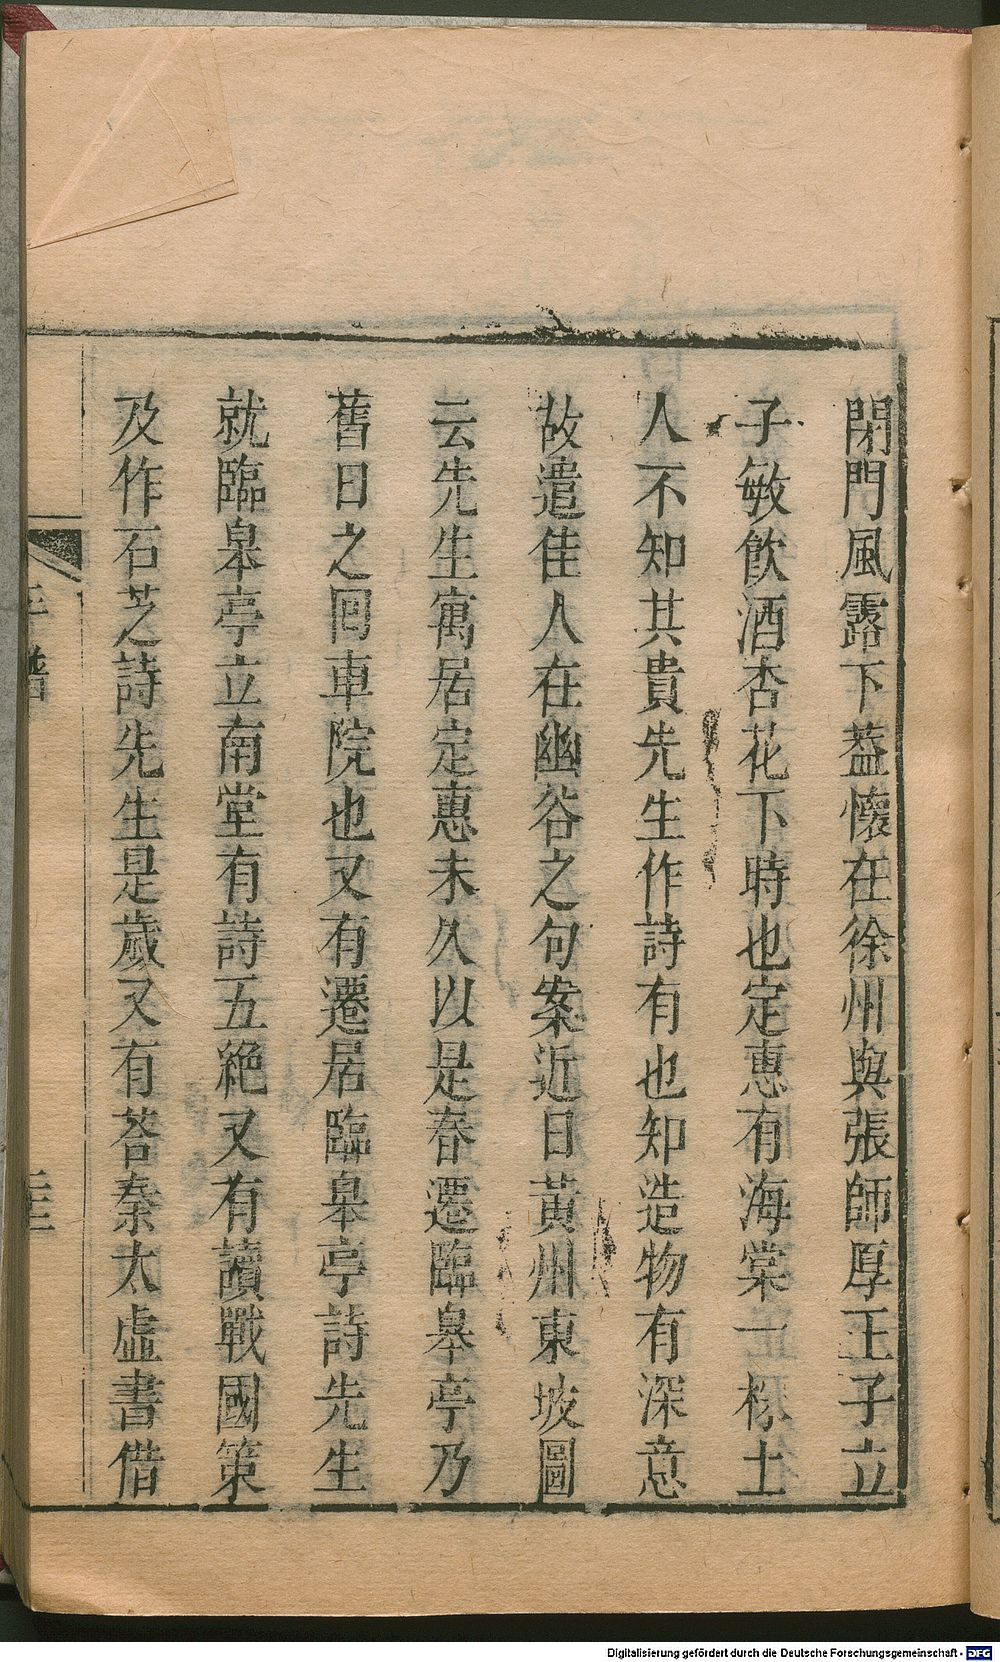 閉門風露下葢懷在徐州與張師厚王子立
子敏飲酒杏花下時也定惠有海棠一株土
人不知其貴先生作詩有也知造物有深意
故遣佳人在幽谷之句案近日黃州東坡圖
云先生寓居定惠未久以是春遷臨皋亭乃
舊日之囘車院也又有遷居臨皋亭詩先生
就臨皋亭立南堂有詩五絶又有讀戰國策
及作石芝詩先生是歲又有荅秦太虛書借
年譜
Digitalisierung gefördert durch die Deutsche Forschungsgemeinschaft - DFG